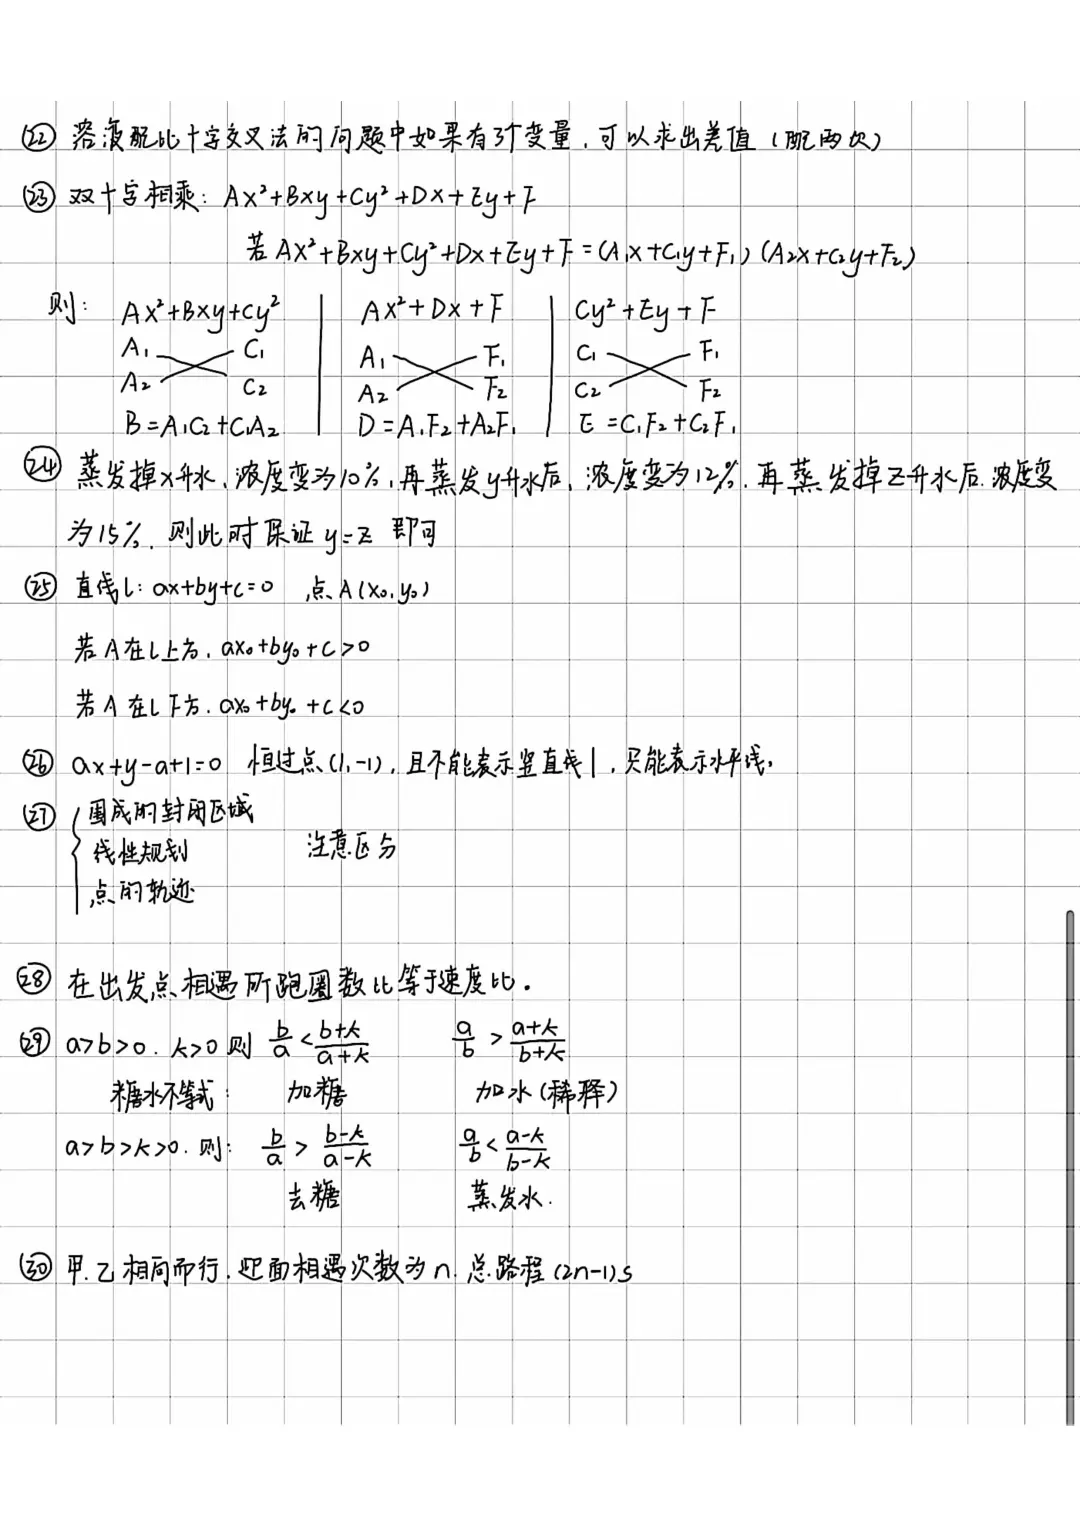 ㉒ 溶液配比十字交叉法的问题中如果有3个变量,可以求出差值(配两次)
㉓ 双十字相乘: Ax²+Bxy+Cy²+Dx+Ey+F
若 Ax²+Bxy+Cy²+Dx+Ey+F=(A₁x+C₁y+F₁)(A₂x+C₂y+F₂)
则: Ax²+Bxy+Cy² | Ax²+Dx+F | Cy²+Ey+F
A₁ C₁ A₁ F₁ C₁ F₁
A₂ C₂ A₂ F₂ C₂ F₂
B=A₁C₂+C₁A₂ D=A₁F₂+A₂F₁ E=C₁F₂+C₂F₁
㉔ 蒸发掉x升水,浓度变为10%,再蒸发y升水后,浓度变为12%,再蒸发掉z升水后,浓度变
为15%,则此时保证 y=z 即可
㉕ 直线l: ax+by+c=0 点A(x₀,y₀)
若A在l上方,ax₀+by₀+c>0
若A在l下方,ax₀+by₀+c<0
㉖ ax+y-a+1=0 恒过点(1,-1),且不能表示竖直线|,只能表示水平线,
㉗ 围成的封闭区域
线性规划 注意区分
点的轨迹
㉘ 在出发点相遇所跑圈数比等于速度比.
㉙ a>b>0. k>0则 b/a < (b+k)/(a+k) a/b > (a+k)/(b+k)
糖水不等式: 加糖 加水(稀释)
a>b>k>0. 则: b/a > (b-k)/(a-k) a/b < (a-k)/(b-k)
去糖 蒸发水.
㉚ 甲.乙相向而行,迎面相遇次数为n.总路程(2n-1)s